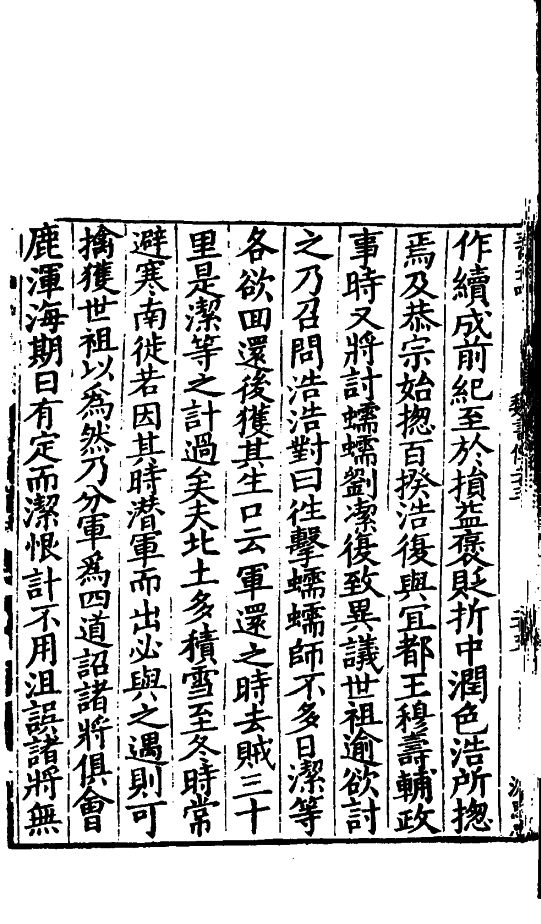 作續成前紀至於損益褒貶折中潤色浩所揔
焉及恭宗始揔百揆浩復與宜都王穆壽輔政
事時又將討蠕蠕劉潔復致異議世祖逾欲討
之乃召問浩浩對曰往擊蠕蠕師不多日潔等
各欲回還後獲其生口云軍還之時去賊三十
里是潔等之計過矣夫北土多積雪至冬時常
避寒南徙若因其時潜軍而出必與之遇則可
擒獲世祖以爲然乃分軍爲四道詔諸將俱會
鹿渾海期日有定而潔恨計不用沮誤諸將無